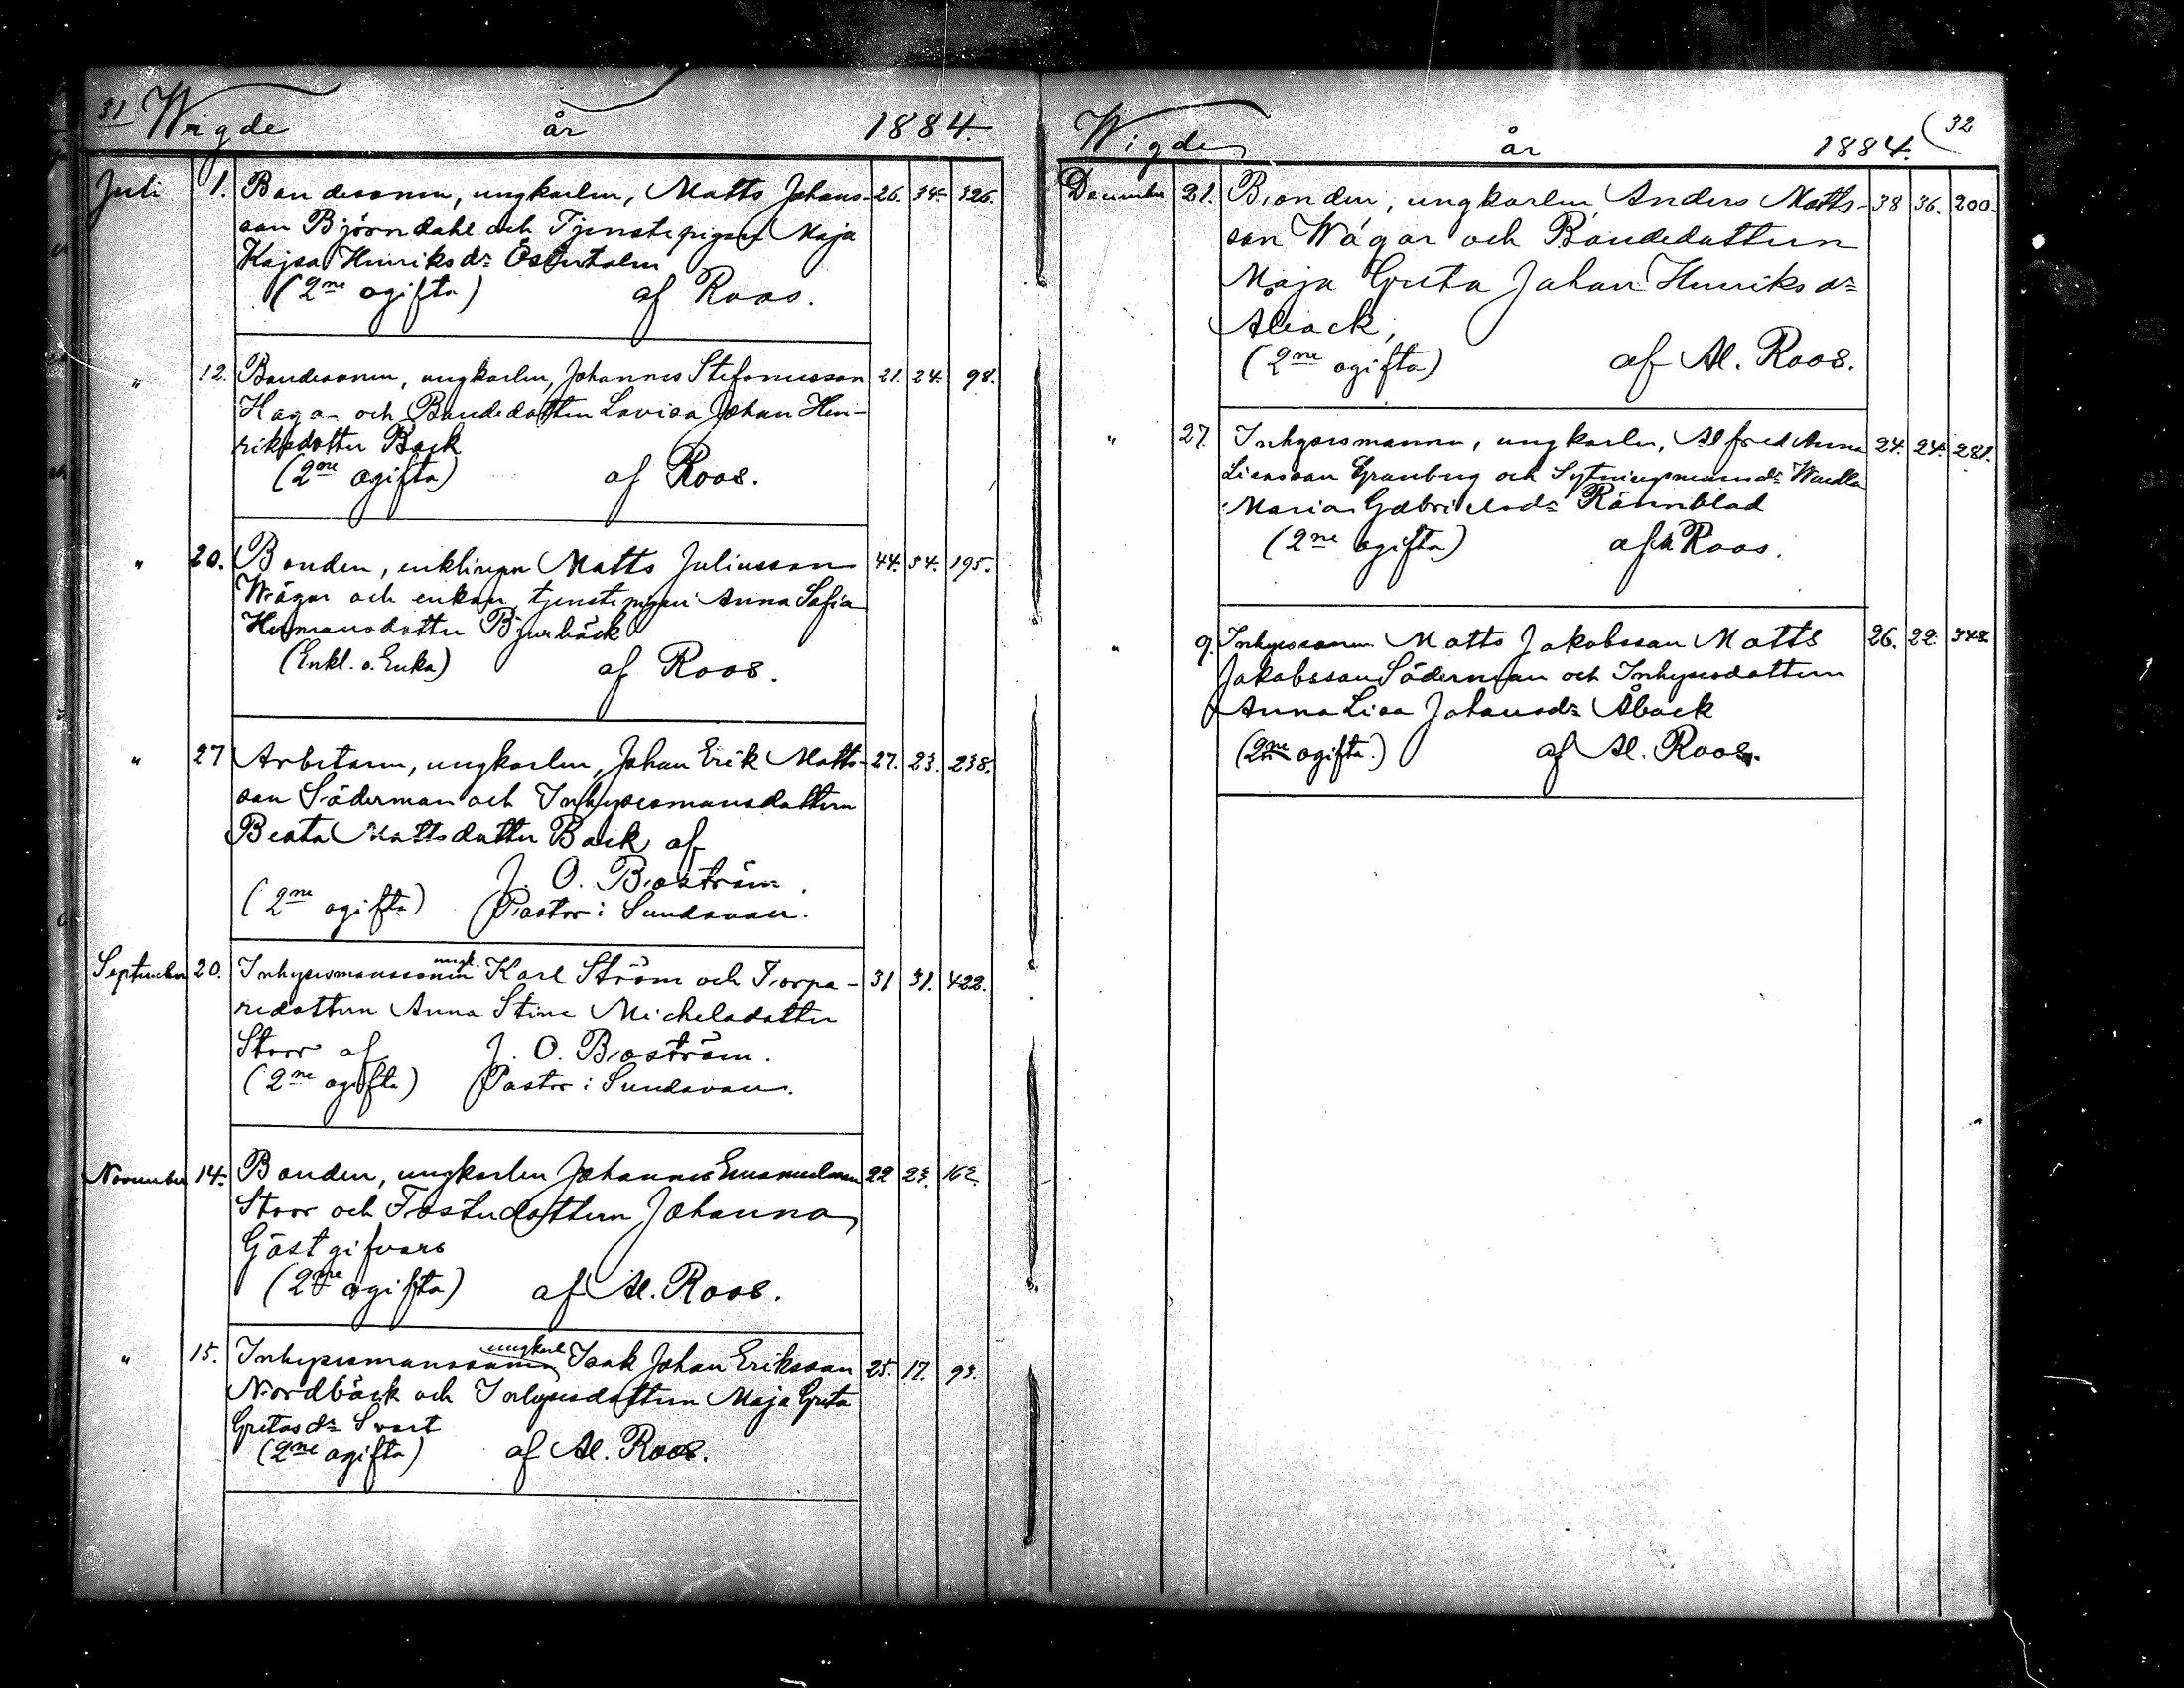 31 Wigde år 1884.
Juli 1. Bondesonen, ungkarlen, Matts Johans- 26. 34. 326.
son Björndahl och Tjenstepigan Maja
Kajsa Henriksdr Österholm
(2ne ogifta) af Roos.
" 12. Bondesonen, ungkarlen, Johannes Stefanusson 21. 24. 98.
Haga och Bondedottern Lovisa Johan Hen-
riksdotter Back
(2ne ogifta) af Roos.
" 20. Bonden, enklingen Matts Juliusson 44. 34. 195.
Wägar och enkan, tjenstepigan Anna Sofia
Hermansdotter Bjurbäck
(Enkl. o. Enka) af Roos.
" 27 Arbetaren, ungkarlen, Johan Erik Matts- 27. 23. 238.
son Söderman och Inhysesmansdottern
Beata Mattsdotter Back af
J. O. Boström.
(2ne ogifta) Pastor i Sundsvau.
September 20. Inhysesmanssonen ungk. Karl Ström och Torpa- 31 31. 422.
redottern Anna Stina Michelsdotter
Storr af J. O. Boström.
(2ne ogifta) Pastor i Sundsvau.
November 14. Bonden, ungkarlen Johannes Emanuelsson 22 23. 162.
Storr och Fosterdottern Johanna
Gästgifvars
(2ne ogifta) af Al. Roos.
" 15. Inhysesmanssonen ungkarl Isak Johan Eriksson 25. 17. 93.
Nordbäck och Inhysesdottern Maja Greta
Gretasdr Svart
(2ne ogifta) af Al. Roos.
Wigde år 1884. 32
December 21. Bonden, ungkarlen Anders Matts- 38 36. 200.
son Wägar och Bondedottern
Maja Greta Johan Henriksdr
Aback,
(2ne ogifta) af Al. Roos.
" 27. Inhysesmannen, ungkarlen, Alfred Anna 24. 24. 281.
Lisasson Granberg och Sytningsmansdr Wendla
Maria Gabrielsdr Rönnblad
(2ne ogifta) af Roos.
" 9. Inhysessonen Matts Jakobsson Matts 26. 22. 348.
Jakobsson Söderman och Inhysesdottern
Anna Lisa Johansdr Åback
(2ne ogifta.) af Al. Roos.